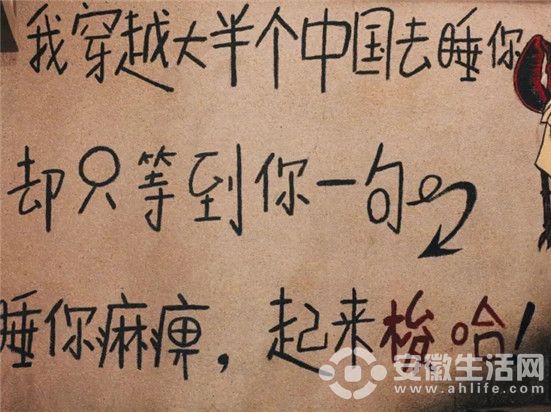 我穿越大半个中国去睡你
却只等到你一句
睡你麻痹，起来梭哈！
安徽生活网
www.ahlife.com